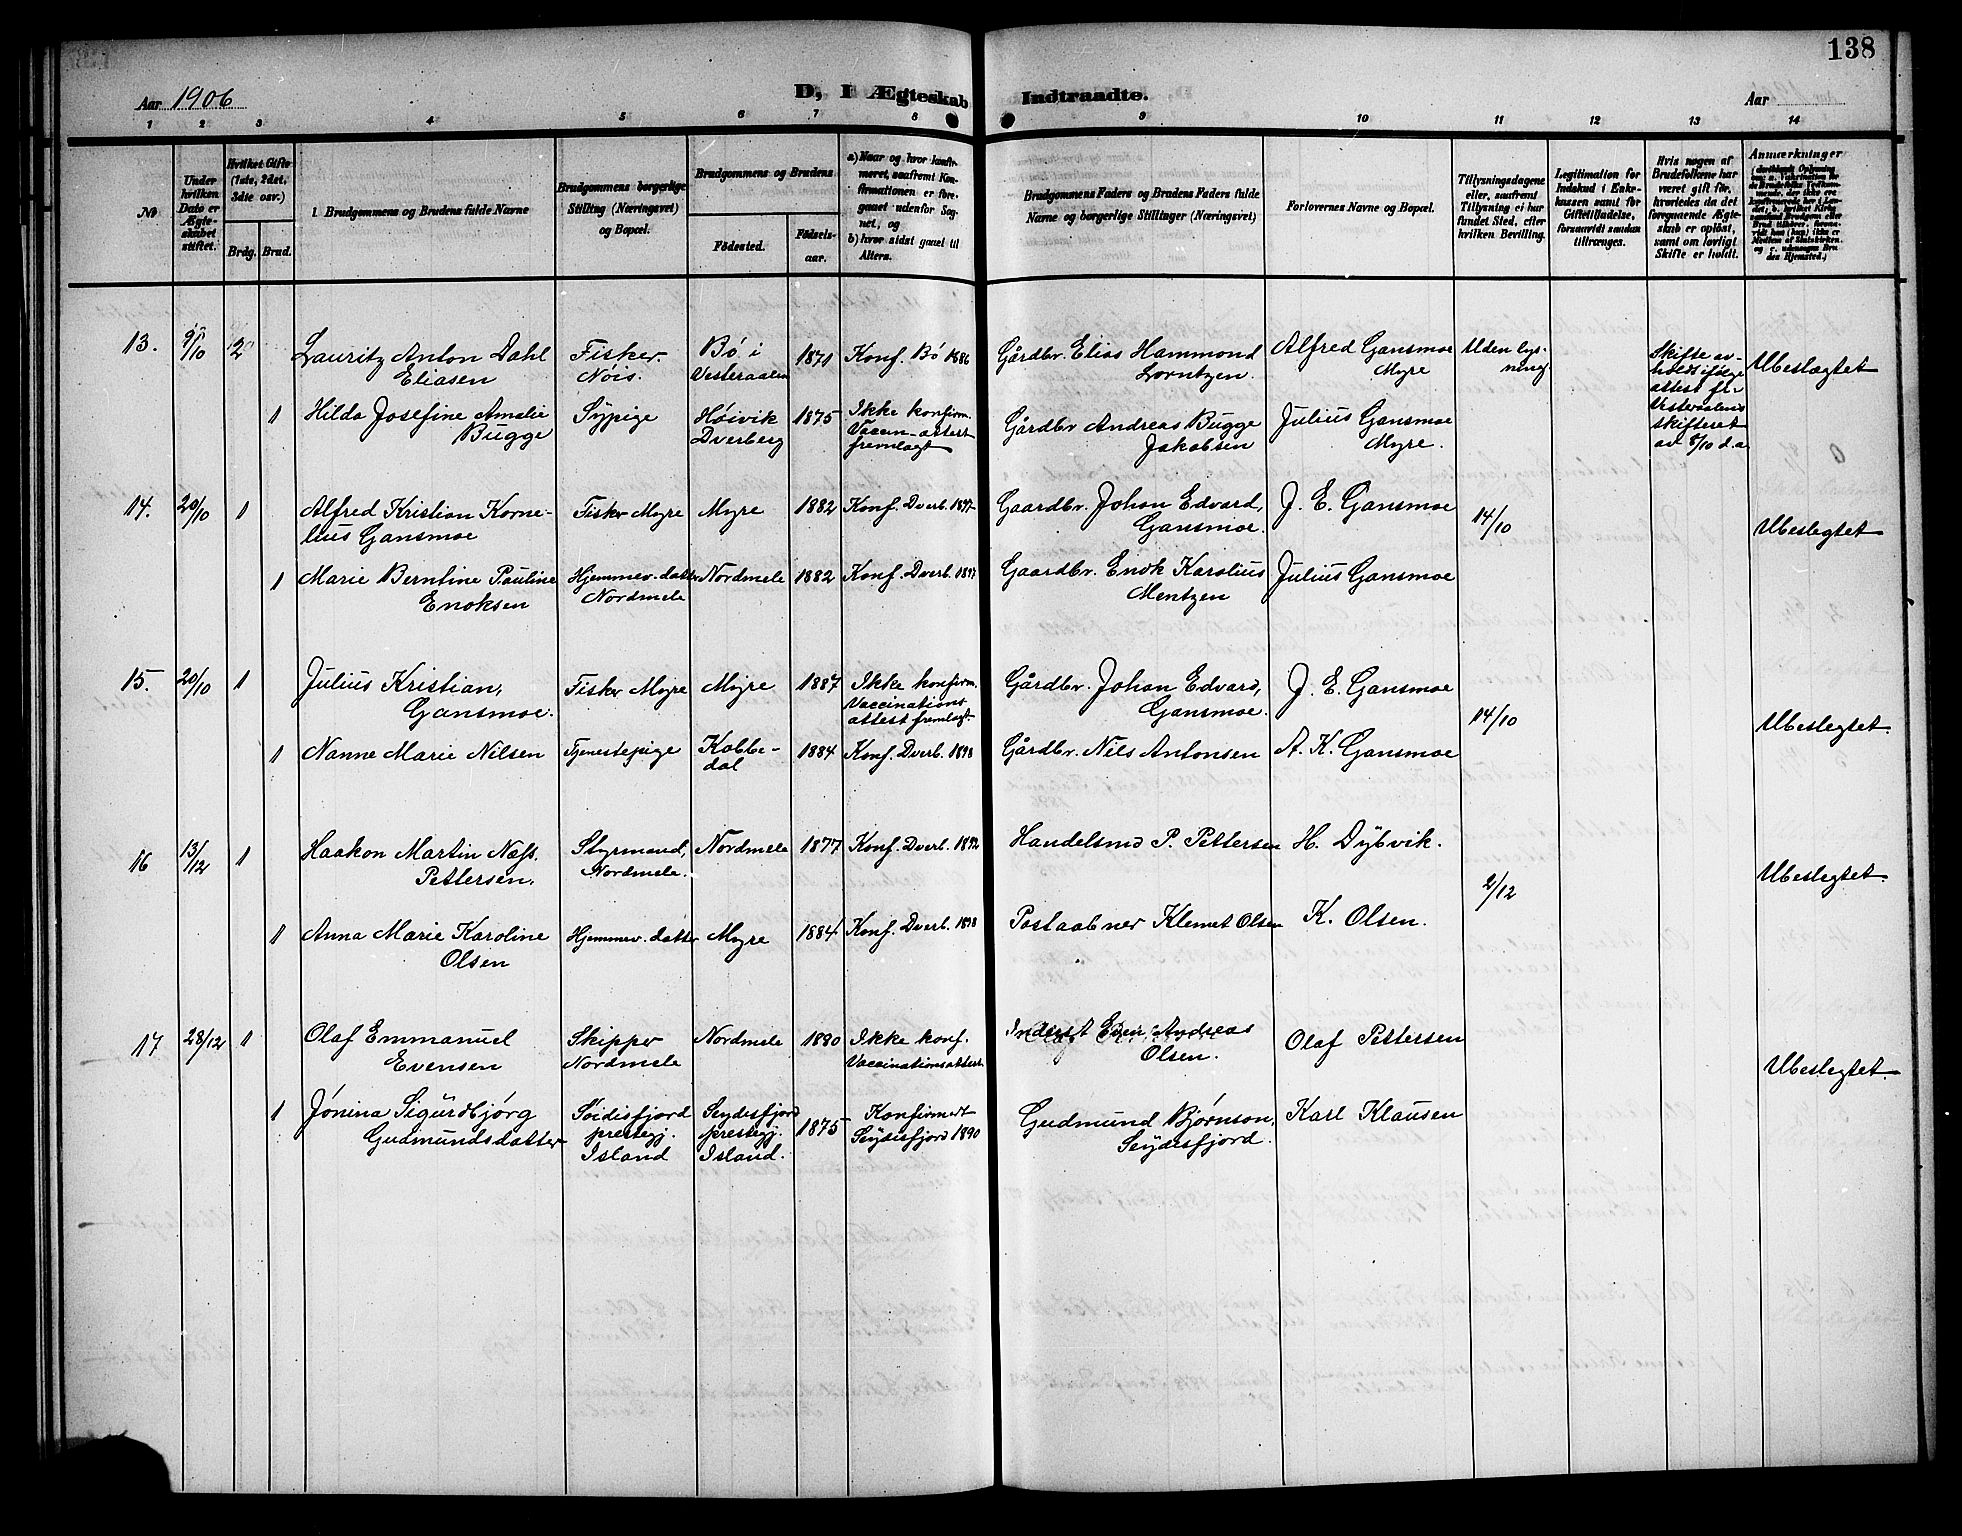 138
Aar 1906
D, I Ægteskab Indtraadte.
Aar
1 2 3 4 5 6 7 8 9 10 11 12 13 14
No
Under hvilken Dato er Ægteskabet stiftet.
Hvilket Gifte (1ste, 2det, 3dte osv.)
Brdg. Brud.
1. Brudgommens og Brudens fulde Navne
Brudgommens borgerlige Stilling (Næringsvei) og Bopæl.
Brudgommens og Brudens
Fødested.
Fødselsaar.
a) Naar og hvor konfirmeret, saafremt Konfirmationen er foregaaet udenfor Sognet, og
b) hvor sidst gaaet til Alters.
Brudgommens Faders og Brudens Faders fulde Navne og borgerlige Stillinger (Næringsvei)
Forlovernes Navne og Bopæl.
Tillysningsdagene eller, saafremt Tillysning ei har fundet Sted, efter hvilken Bevilling.
Legitimation for Indskud i Enkekassen samt for Giftetilladelse, forsaavidt saadan tiltrænges.
Hvis nogen af Brudefolkene har været gift før, hvorledes da det foregaaende Ægteskab er opløst, samt om lovligt Skifte er holdt.
Anmærkninger
13. 9/10 2 Lauritz Anton Dahl Eliasen
Fisker. Nöis.
Bö i Vesteraalen
1871
Konf. Bö 1886
Gårdbr. Elias Hammond Lorntzen.
Alfred Gansmoe Myre
Uden lysning
Skifte avholdt ifølge attest fr. Vesteraalens skifteret av 8/10 d.a
Ubeslægtet
1 Hilda Josefine Amalie Bugge
Sypige
Høivik Dverberg
1875
Ikke konfirm. Vaccin-attest fremlagt
Gårdbr Andreas Bugge Jakobsen
Julius Gansmoe Myre.
14. 20/10 1 Alfred Kristian Kornelius Gansmoe
Fisker Myre
Myre
1882
Konf. Dverb. 1897
Gaardbr. Johan Edvard, Gansmoe.
J. E. Gansmoe
14/10
Ubeslegtet
1 Marie Berntine Pauline Enoksen
Hjemmev. datter Nordmele
Nordmele
1882
Konf. Dverb. 1897
Gaardbr. Enok Karolius Mentzen
Julius Gansmoe
15. 20/10 1 Julius Kristian, Gansmoe.
Fisker Myre
Myre
1887
Ikke konfirm. Vaccinations attest fremlagt
Gårdbr. Johan Edvard, Gansmoe.
J. E. Gansmoe
14/10
Ubeslegtet.
1 Nanne Marie Nilsen
Tjenestepige
Kobbedal
1884
Konf. Dverb. 1898
Gårdbr. Nils Antonsen
A. K. Gansmoe
16 13/12 1 Haakon Martin Næss. Pettersen.
Styrmand, Nordmele.
Nordmele
1877
Konf. Dverb. 1892
Handelsmd P. Pettersen
H. Dybvik.
2/12
Ubeslegtet.
1 Anna Marie Karoline Olsen
Hjemmev. datter
Myre
1884
Konf. Dverb. 1898
Postaabner Klemet Olsen
K. Olsen.
17 28/12 1 Olaf Emmanuel Evensen
Skipper Nordmele
Nordmele
1880
Ikke konf. Vaccinationsattest
Inderst Even Andreas Olsen.
Olaf Pettersen
Ubeslegtet.
1 Jónina Sigurdbjørg Gudmundsdatter
Søidisfjord prestegj. Island
Seydesfjord prestegj. Island.
1875
Konfirmert Seydisfjord 1890
Gudmund Bjørnson, Seydesfjord.
Karl Klausen